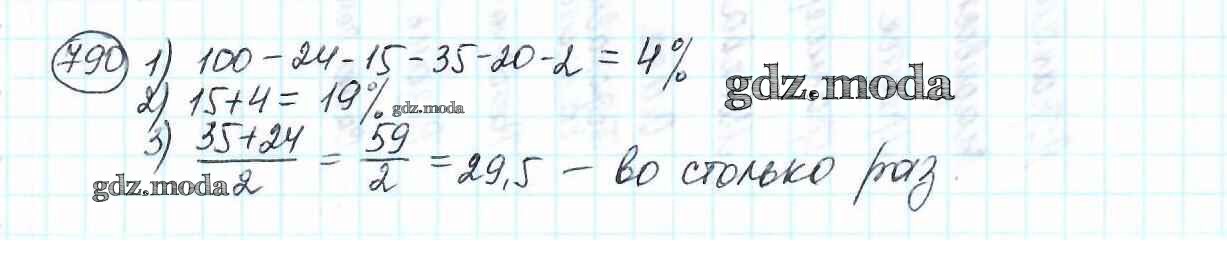 790 1) 100 - 24 - 15 - 35 - 20 - 2 = 4%
gdz.moda
2) 15 + 4 = 19%.
gdz.moda
3) (35 + 24)/2 = 59/2 = 29,5 — во столько раз.
gdz.moda